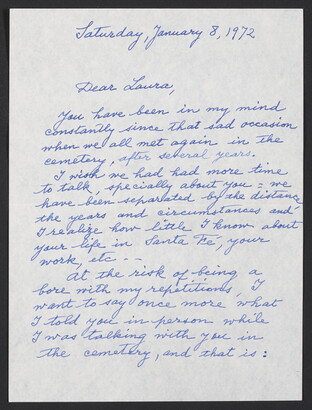 Saturday, January 8, 1972
Dear Laura,
You have been in my mind
constantly since that sad occasion
when we all met again in the
cemetery, after several years.
I wish we had had more time
to talk, specially about you = we
have been separated by the distance
the years and circumstances and
I realize how little I know about
your life in Santa Fé, your
work, etc - -
At the risk of being a
bore with my repetitions, I
want to say once more what
I told you in person while
I was talking with you in
the cemetery, and that is: